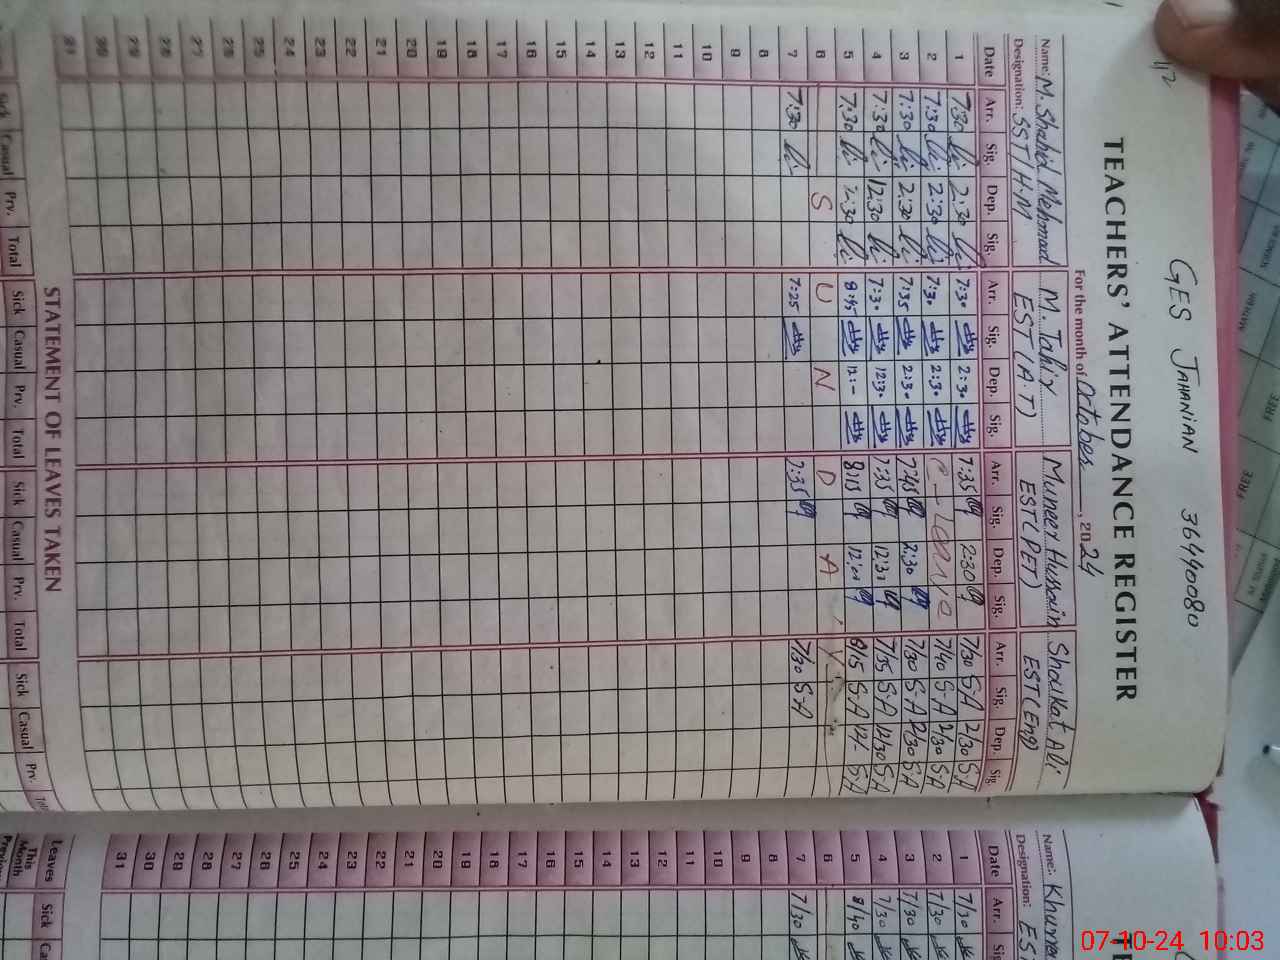 GES JAHANIAN 36440080
TEACHERS' ATTENDANCE REGISTER
For the month of October, 2024
Name: M. Shahid Mehmood M. Tahir Muneer Hussain Shoukat Ali
Designation: SST/H.M EST (A.T) EST (PET) EST (Eng)
Date Arr. Sig. Dep. Sig. Arr. Sig. Dep. Sig. Arr. Sig. Dep. Sig. Arr. Sig. Dep. Sig.
1 7:30 2:30 7:30 2:30 7:35 2:30 7/30 S.A 2/30 S.A
2 7:30 2:30 7:30 2:30 C - leave 7/40 S.A 2/30 S.A
3 7:30 2:30 7:35 2:30 7:45 2:30 7/30 S.A 2/30 S.A
4 7:30 12:30 7:30 12:30 7:35 12:30 7/35 S.A 12/30 S.A
5 7:30 8:45 12:- 8:15 8/15 S.A 12/- S.A
6 S U N D A Y
7 7:30 7:25 7:35 7/30 S.A
8
9
10
11
12
13
14
15
16
17
18
19
20
21
22
23
24
25
26
27
28
29
30
31
STATEMENT OF LEAVES TAKEN
Sick Casual Prv. Total Sick Casual Prv. Total Sick Casual Prv. Total Sick Casual Prv.
Name:
Designation:
Date Arr.
1 7/30
2 7/30
3 7/30
4 7/30
5 8/40
6
7 7/30
8
9
10
11
12
13
14
15
16
17
18
19
20
21
22
23
24
25
26
27
28
29
30
31
Leaves Sick
This
Month
FREE
FREE
07-10-24 10:03